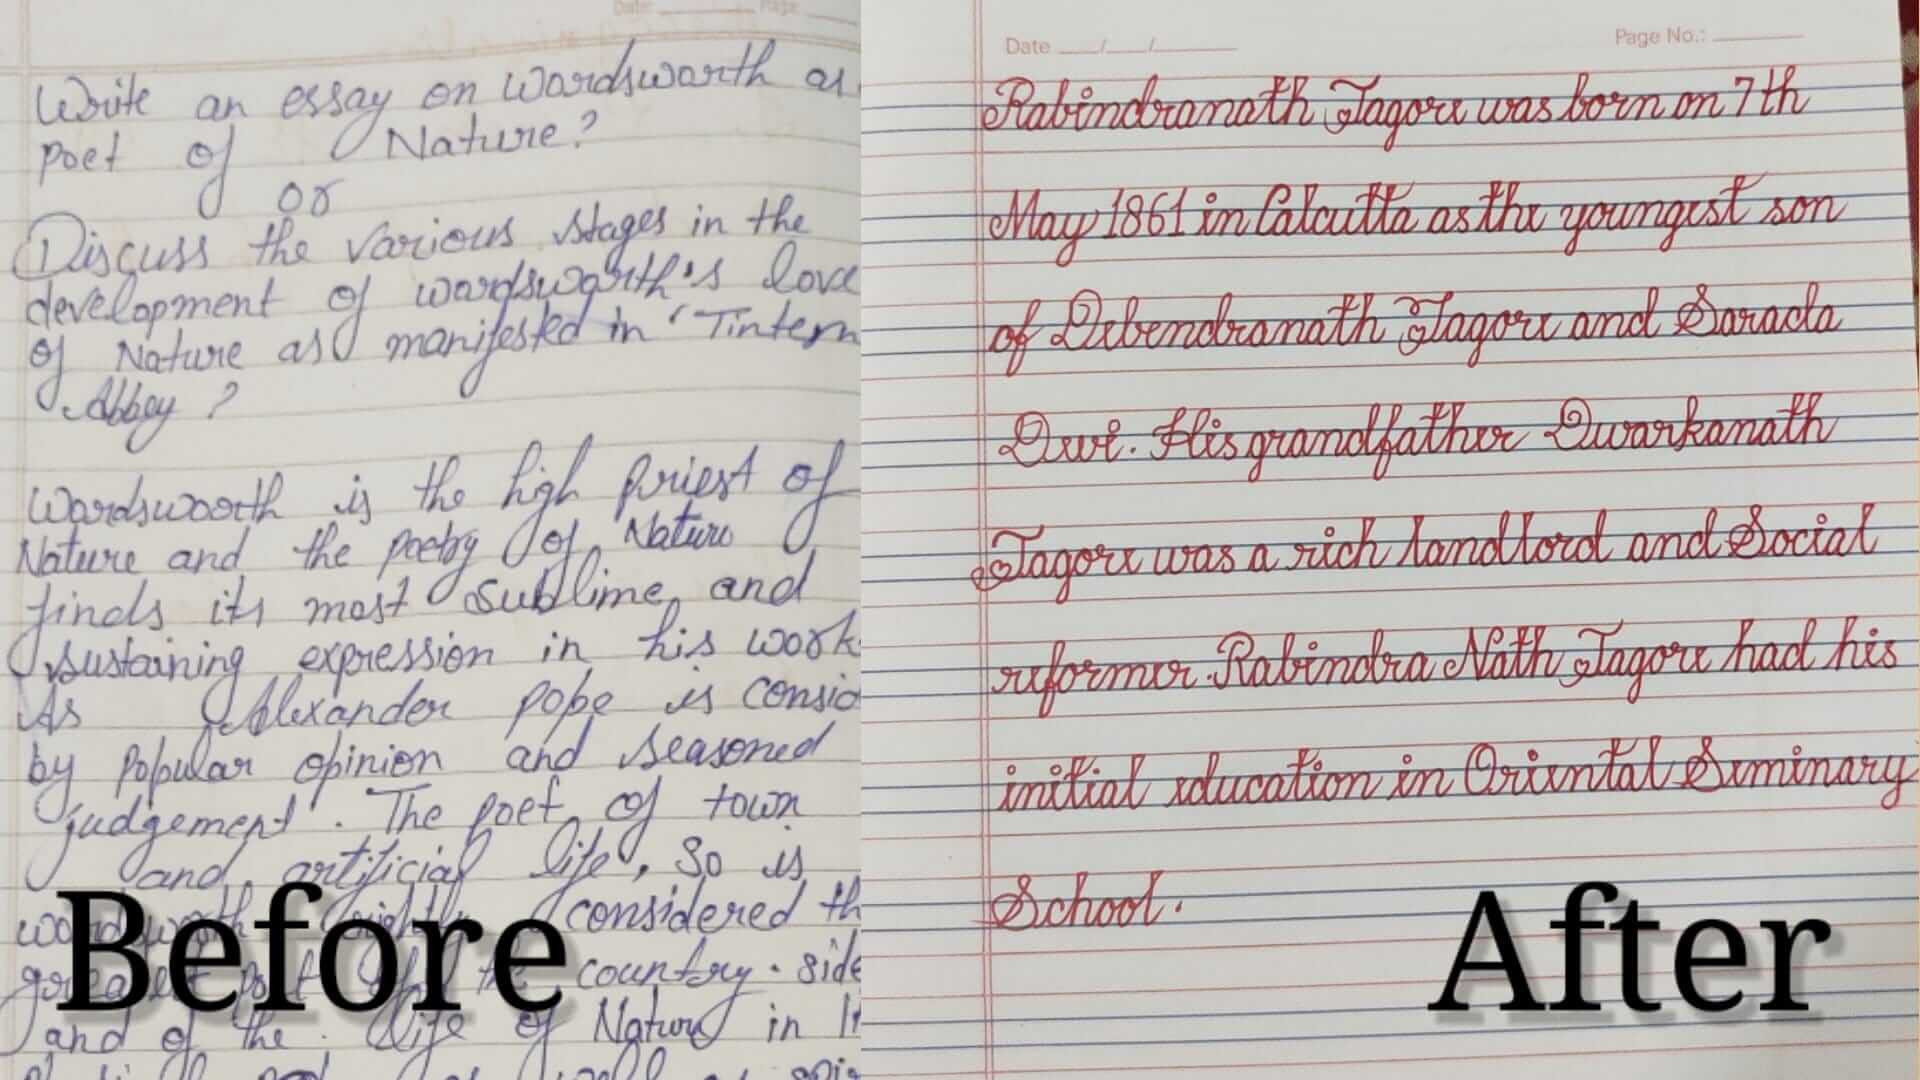 Date Page
Write an essay on Wardswarth as
poet of Nature?
or
Discuss the various stages in the
development of wardswarth's love
of Nature as manifested in 'Tintern
Abbey ?
Wardswoorth is the high priest of
Nature and the poetry of Nature
finds its most sublime and
sustaining expression in his work
As Alexander pope is consid
by popular opinion and seasoned
judgement. The poet of town
and artificial life, so is
considered th
the country-side
and of the life of Nature in
Before
Date __/__/__ Page No.:
Rabindranath Tagore was born on 7th
May 1861 in Calcutta as the youngest son
of Debendranath Tagore and Sarada
Devi. His grandfather Dwarkanath
Tagore was a rich landlord and Social
reformer. Rabindra Nath Tagore had his
initial education in Oriental Seminary
School.
After